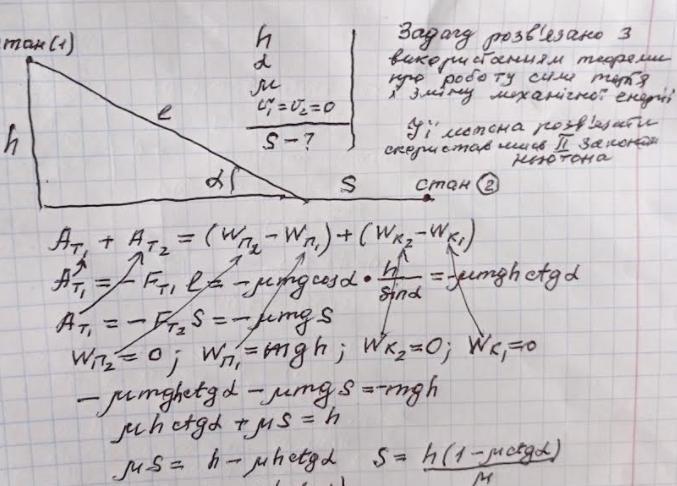 стан(1)
h
l
α
S
стан ②
h
α
μ
v₁=v₂=0
S-?
Задачу розв'язано з
використанням теореми
про роботу сили тертя
і зміну механічної енергії
Її можна розв'язати
скориставшись II законом
Ньютона
A_T₁ + A_T₂ = (W_П₂ - W_П₁) + (W_K₂ - W_K₁)
A_T₁ = - F_T₁ l = - μmgcosα • h/sinα = -μmghctgα
A_T₁ = - F_T₂ S = -μmgS
W_П₂ = 0 ; W_П₁ = mgh ; W_K₂ = 0; W_K₁ = 0
- μmghctgα - μmgS = -mgh
μhctgα + μS = h
μS = h - μhctgα S = h(1-μctgα)/μ